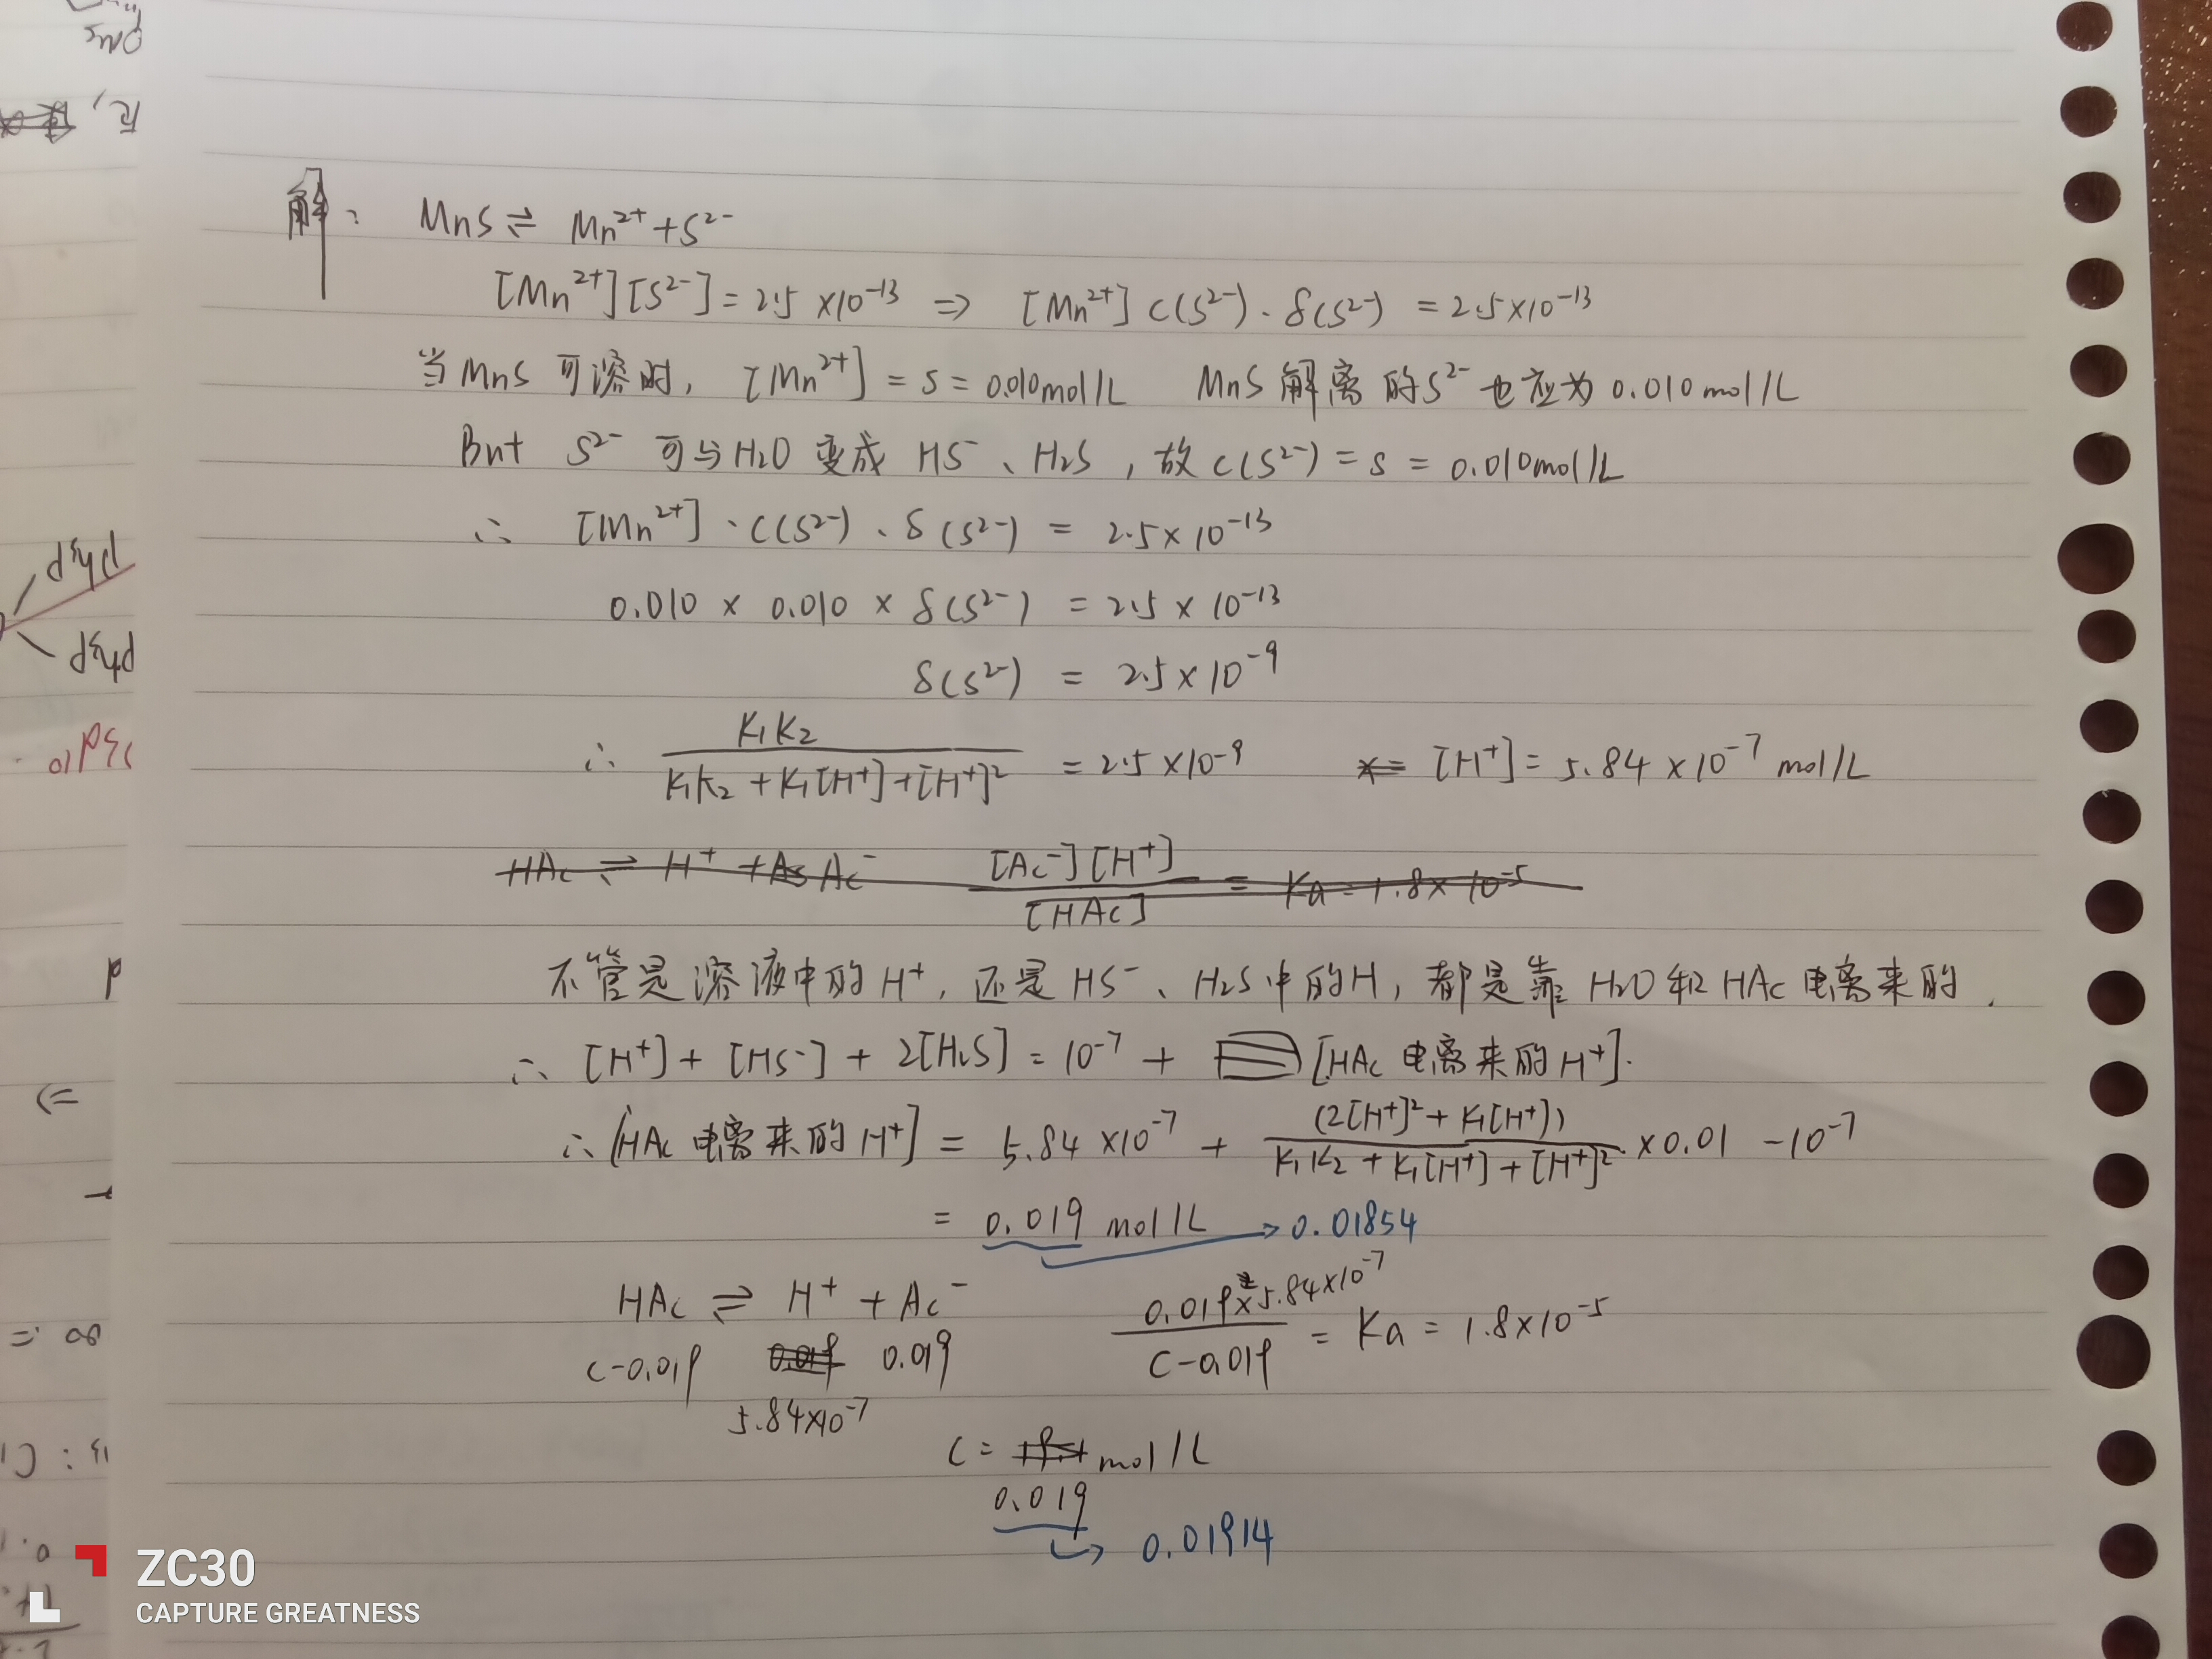 解: MnS ⇌ Mn²⁺+S²⁻
[Mn²⁺][S²⁻]=2.5×10⁻¹³ ⇒ [Mn²⁺] c(S²⁻)·δ(S²⁻) =2.5×10⁻¹³
当MnS可溶时, [Mn²⁺]=s=0.010mol/L MnS解离的S²⁻也应为0.010mol/L
But S²⁻ 可与H₂O 变成 HS⁻、H₂S, 故c(S²⁻)=s=0.010mol/L
∴ [Mn²⁺]·c(S²⁻)·δ(S²⁻) = 2.5×10⁻¹³
0.010 × 0.010 × δ(S²⁻) =2.5×10⁻¹³
δ(S²⁻) = 2.5×10⁻⁹
∴ K₁K₂/(K₁K₂+K₁[H⁺]+[H⁺]²) =2.5×10⁻⁹ [H⁺]=5.84×10⁻⁷ mol/L
HAc ⇌ H⁺ + Ac⁻ [Ac⁻][H⁺]/[HAc] = Ka=1.8×10⁻⁵
不管是溶液中的H⁺, 还是HS⁻、H₂S中的H, 都是靠H₂O和HAc电离来的.
∴ [H⁺]+[HS⁻]+2[H₂S]=10⁻⁷+ [HAc电离来的H⁺].
∴ [HAc电离来的H⁺] = 5.84×10⁻⁷ + (2[H⁺]²+K₁[H⁺])/(K₁K₂+K₁[H⁺]+[H⁺]²) ×0.01 -10⁻⁷
= 0.019 mol/L → 0.01854
HAc ⇌ H⁺ + Ac⁻ 0.019×5.84×10⁻⁷/(C-0.019) = Ka = 1.8×10⁻⁵
C-0.019 0.019 0.019
5.84×10⁻⁷
C= mol/L
0.019
→ 0.01914
ZC30
CAPTURE GREATNESS